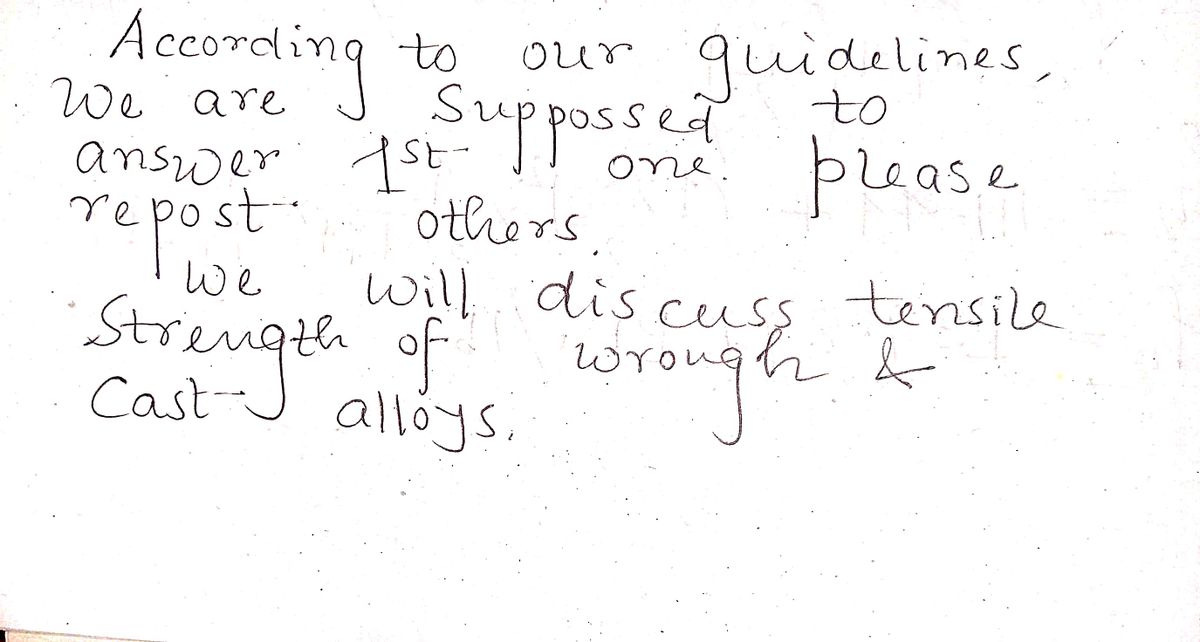 According to our guidelines,
We are Suppossed to
answer 1st one. please
repost others.
we will discuss tensile
Strength of wrough &
Cast alloys.